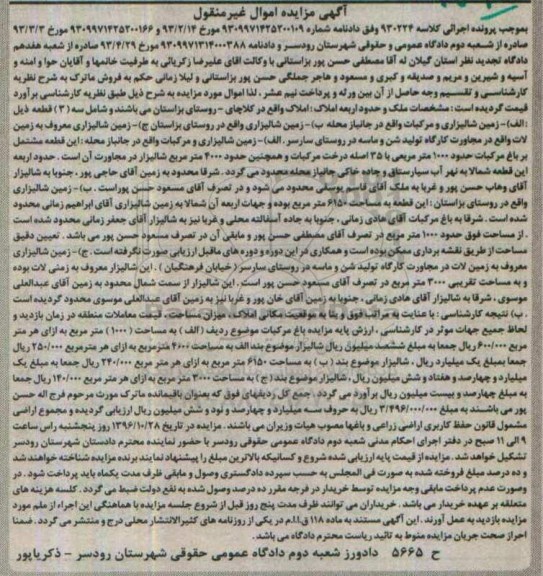 آگهی مزایده اموال غیرمنقول
بموجب پرونده اجرائی کلاسه ۹۳۰۲۲۴ وفق دادنامه شماره ۹۳۰۹۹۷۱۴۲۵۲۰۰۱۰۹ مورخ ۹۳/۲/۱۴ و ۹۳۰۹۹۷۱۴۲۵۲۰۰۱۶۶ مورخ ۹۳/۳/۳
صادره از شعبه دوم دادگاه عمومی و حقوقی شهرستان رودسر و دادنامه ۹۳۰۹۹۷۱۳۱۴۰۰۰۳۸۸ مورخ ۹۳/۴/۲۹ صادره از شعبه هفدهم
دادگاه تجدید نظر استان گیلان له آقا مصطفی حسن پور بزاستانی با وکالت آقای علیرضا زکریائی به طرفیت خانمها و آقایان حوا و امنه و
آسیه و شیرین و مریم و صدیقه و کبری و مسعود و هاجر جملگی حسن پور بزاستانی و لیلا زمانی حکم به فروش ماترک به شرح نظریه
کارشناسی و تقسیم وجه حاصل از آن بین ورثه و پرداخت نیم عشر ، لذا اموال مورد مزایده به شرح ذیل طبق نظریه کارشناسی برآورد
قیمت گردیده است : مشخصات ملک و حدود اربعه املاک : املاک واقع در کلاچای - روستای بزاستان می باشند و شامل سه ( ۳ ) قطعه ذیل
: الف) - زمین شالیزاری و مرکبات واقع در جانباز محله ب) - زمین شالیزاری واقع در روستای بزاستان ج) - زمین شالیزاری معروف به زمین
لات واقع در مجاورت کارگاه تولید شن و ماسه در روستای سارسر . الف) - زمین شالیزاری و مرکبات واقع در جانباز محله : این قطعه مشتمل
بر باغ مرکبات حدود ۱۰۰۰ متر مربعی با ۳۵ اصله درخت مرکبات و همچنین حدود ۴۰۰۰ متر مربع شالیزار در مجاورت آن است . حدود اربعه
این قطعه شمالا به نهر آب سیارستاق و جاده خاکی جانباز محله محدود می گردد . شرقا محدود به زمین آقای حاجی پور ، جنوبا به شالیزار
آقای وهاب حسن پور و غربا به ملک آقای قاسم یوسفی محدود می شود و در تصرف آقای مسعود حسن پور است . ب) - زمین شالیزاری
واقع در روستای بزاستان : این قطعه به مساحت ۶۱۵۰ متر مربع بوده و جهات اربعه آن شمالا به زمین شالیزاری آقای ابراهیم زمانی محدود
شده است . شرقا به باغ مرکبات آقای هادی زمانی ، جنوبا به جاده آسفالته محلی و غربا نیز به شالیزار آقای جعفر زمانی محدود شده است
. از مساحت فوق حدود ۱۰۰۰ متر مربع در تصرف آقای مصطفی حسن پور و مابقی آن در تصرف مسعود حسن پور می باشد . تعیین دقیق
مساحت از طریق نقشه برداری ممکن بوده است و همکاری در این دوره و دوره های ماقبل ارزیابی صورت نگرفته است . ج) - زمین شالیزاری
معروف به زمین لات در مجاورت کارگاه تولید شن و ماسه در روستای سارسر ( خیابان فرهنگیان ) . این شالیزار معروف به زمنی لات بوده
و به مساحت تقریبی ۳۰۰۰ متر مربع در تصرف آقای مسعود حسن پور است . این شالیزار از سمت شمال محدود به زمین آقای عبدالعلی
موسوی ، شرقا به شالیزار آقای هادی زمانی ، جنوبا به زمین آقای خان پور و غربا نیز به زمین آقای عبدالعلی موسوی محدود گردیده است
. ب) نتیجه کارشناسی : با عنایت به مراتب فوق و بنا به موقعیت مکانی املاک، میزان مساحت، قیمت معاملات منطقه در زمان بازدید و
لحاظ جمیع جهات موثر در کارشناسی ، ارزش پایه مزایده باغ مرکبات موضوع ردیف ( الف ) به مساحت ( ۱۰۰۰ ) متر مربع به ازای هر متر
مربع ۶۰۰/۰۰۰ ریال جمعا به مبلغ ششصد میلیون ریال شالیزار موضوع بند الف به مساحت ۴۶۰۰ مترمربع به ازای هر مترمربع ۲۵۰/۰۰۰ ریال
جمعا بمبلغ یک میلیارد ریال ، شالیزار موضوع بند ( ب ) به مساحت ۶۱۵۰ متر مربع به ازای هر متر مربع ۲۴۰/۰۰۰ ریال جمعا به مبلغ یک
میلیارد و چهارصد و هفتاد و شش میلیون ریال ، شالیزار موضوع بند ( ج ) به مساحت ۳۰۰۰ متر مربع به ازای هر متر مربع ۱۴۰/۰۰۰ ریال جمعا
به مبلغ چهارصد و بیست میلیون ریال برآورد می گردد . جمع کل ردیفهای فوق که بعنوان باقیمانده ماترک مورث مرحوم فرج اله حسن
پور می باشند به مبلغ ۳/۴۹۶/۰۰۰/۰۰۰ ریال به حروف سه میلیارد و چهارصد و نود و شش میلیون ریال ارزیابی گردیده و مجموع اراضی
مشمول قانون حفظ کاربری اراضی زراعی و باغها مصوب هیات وزیران می باشند . مزایده در تاریخ ۱۳۹۶/۱۰/۲۸ روز پنجشنبه راس ساعت
۹ الی ۱۱ صبح در دفتر اجرای احکام مدنی شعبه دوم دادگاه عمومی حقوقی رودسر با حضور نماینده محترم دادستان شهرستان رودسر
تشکیل خواهد شد . مزایده از قیمت پایه ارزیابی شده شروع و کسانیکه بالاترین مبلغ را پیشنهاد نمایند برنده مزایده شناخته خواهند شد
و ده درصد مبلغ فروخته شده به صورت فی المجلس به حسب سپرده دادگستری وصول و مابقی ظرف مدت یکماه باید پرداخت شود . در
وصورت عدم پرداخت مابقی وجه مزایده توسط خریدار در فرجه مقرر ده درصد وصول شده به نفع دولت ضبط می گردد . کلسه هزینه های
متعلقه بر عهده خریدار می باشد . خریداران می توانند ظرف مدت پنج روز قبل از شروع جلسه مزایده با هماهنگی این اجراء از ملم مورد
مزایده بازدید به عمل آورند . این آگهی مستند به ماده ۱۱۸ ق.ا.ا.م در یکی از روزنامه های کثیرالانتشار محلی درج و منتشر می گردد . ضمنا
احراز صحت جریان مزایده منوط به تائید ریاست محترم دادگاه می باشد .
ح ۵۶۶۵ دادورز شعبه دوم دادگاه عمومی حقوقی شهرستان رودسر - ذکریاپور